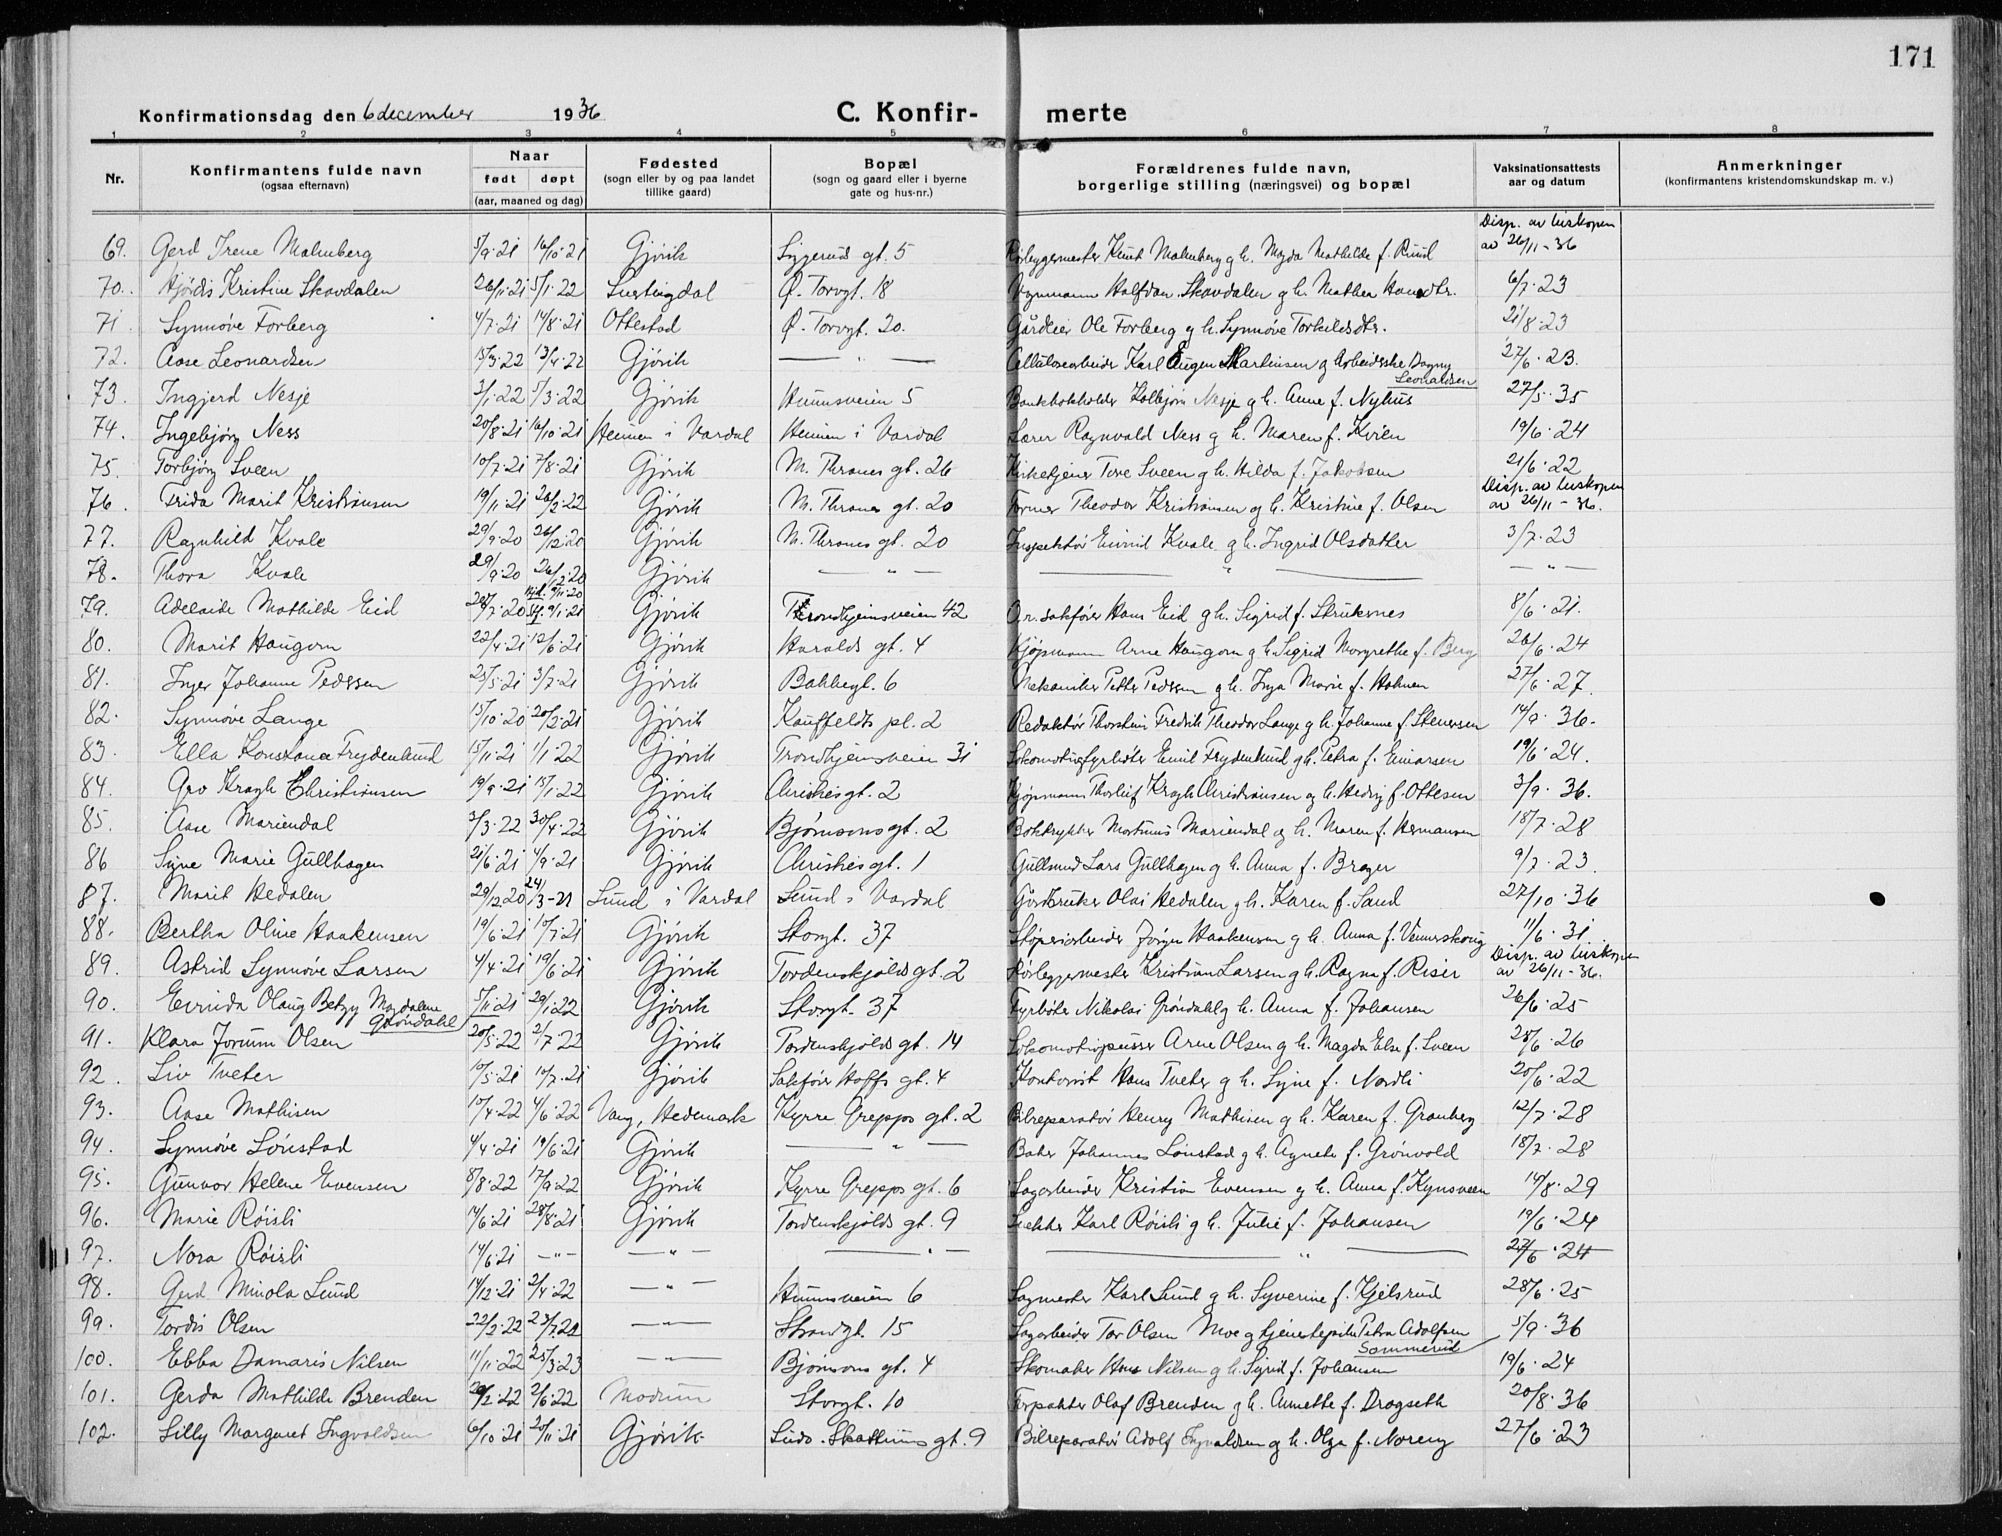 171
Konfirmationsdag den 6 december 1936 C. Konfirmerte
1 2 3 4 5 6 7 8
Nr. Konfirmantens fulde navn (ogsaa efternavn) Naar født døpt (aar, maaned og dag) Fødested (sogn eller by og paa landet tillike gaard) Bopæl (sogn og gaard eller i byerne gate og hus-nr.) Forældrenes fulde navn, borgerlige stilling (næringsvei) og bopæl Vaksinationsattests aar og datum Anmerkninger (konfirmantens kristendomskundskap m. v.)
69. Gerd Irene Malmberg 5/9.21 16/10.21 Gjøvik gt. 5 Rørleggermester Knut Malmberg g h. Magda Mathilde f. Ruud Disp. av biskopen av 26/11-36
70. Hjørdis Kristine Skavdalen 26/11.21 5/1.22 Ø. Torvgt. 18 Halfdan Skavdalen g h. Mathea Hansdtr. 6/7.23
71. Synnøve Forberg 4/7.21 14/8.21 Ottestad Ø. Torvgt. 20. Gårdeier Ole Forberg g h. Synnøve Torkildsdtr. 21/8.23
72. Aase Leonardsen 15/3.22 13/4.22 Gjøvik — " — Cellulosearbeider Karl Eugen Martinsen g Arbeiderske Dagny Leonardsen 27/6.23.
73. Ingjerd Nesje 3/1.22 5/3.22 Gjøvik Hunnsveien 5 Bankbokholder Kolbjørn Nesje g h. Anne f. Nyhus 27/5.35
74. Ingebjørg Ness 20/8.21 16/10.21 Heimen i Vardal Heimen i Vardal Lærer Ragnvald Ness g h. Maren f. Kvien 19/6.24
75. Torbjørg Sveen 10/7.21 7/8.21 Gjøvik M. Thranes gt. 26 Kirketjener Tore Sveen g h. Hilda f. Jakobsen 21/6.22
76. Frida Marit Kristiansen 19/11.21 26/2.22 Gjøvik M. Thranes gt. 20 Former Theodor Kristiansen g h. Kristine f. Olsen Disp. av biskopen av 26/11-36.
77. Ragnhild Kvale 29/9.20 26/12.20 Gjøvik M. Thranes gt. 20 Inspektør Eivind Kvale g h. Ingrid Olsdatter 3/7.23
78. Thora Kvale 29/9.20 26/12.20 Gjøvik — " — — " — — " —
79. Adelaide Mathilde Eid 7.20 9/1.21 Gjøvik Trondhjemsveien 42 O.r.sakfører Hans Eid g h. Sigrid f. Skuknes 8/6.21.
80. Marit Haugom 22/4.21 12/6.21 Gjøvik Haralds gt. 4 Kjøpmann Arne Haugom g h. Sigrid Margrethe f. Berg 26/6.24
81. Inger Johanne Pedersen 25/5.21 3/7.21 Gjøvik Bakkegt. 6 Mekaniker Petter Pedersen g h. Inga Marie f. Holmen 27/6.27.
82. Synnøve Lange 15/10.20 20/2.21 Gjøvik Kauffeldts pl. 2 Redaktør Thorstein Fredrik Theodor Lange g h. Johanne f. Stenersen 14/9.36.
83. Ella Konstance Frydenlund 15/11.21 1/1.22 Gjøvik Trondhjemsveien 31 Lokomotivfyrbøter Emil Frydenlund g h. Petra f. Einarsen 19/6.24.
84. Gro Kragh Christiansen 19/9.21 15/1.22 Gjøvik Christiesgt. 2 Kjøpmann Thorleif Kragh Christiansen g h. Hedvig f. Ottesen 3/9.36.
85. Aase Mariendal 3/3.22 30/4.22 Gjøvik Bjørnsonsgt. 2 Boktrykker Martinus Mariendal g h. Maren f. Hermansen 18/7.28
86 Signe Marie Gullhagen 21/6.21 4/9.21 Gjøvik Christiesgt. 1 Gullsmed Lars Gullhagen g h. Anna f. Brager 9/7.23
87. Marit Hedalen 29/12.20 24/3-21 Lund i Vardal Lund i Vardal Gårdbruker Olai Hedalen g h. Karen f. Sand 27/10.36
88. Bertha Oline Haakensen 19/6.21 10/7.21 Gjøvik Storgt. 37 Støperiarbeider Jørgen Haakensen g h. Anna f. Vennerskoug 11/6.31
89. Astrid Synnøve Larsen 4/4.21 19/6.21 Gjøvik Tordenskjolds gt. 2 Rørleggermester Kristian Larsen g h. Ragna f. Riser Disp. av biskopen av 26/11-36.
90. Evinda Olaug Betzy Magdalene Grøndahl 5/11.21 29/1.22 Gjøvik Storgt. 37 Fyrbøter Nikolai Grøndahl g h. Anna f. Johansen 26/6.25
91. Klara Jorunn Olsen 20/5.22 2/7.22 Gjøvik Tordenskjolds gt. 14 Lokomotivpusser Arne Olsen g h. Magda Else f. Sveen 28/6.26
92. Liv Tveter 10/5.21 10/7.21 Gjøvik Sakfører Hoffs gt. 4 Kontorist Hans Tveter g h. Signe f. Nordli 20/6.22
93. Aase Mathisen 10/4.22 4/6.22 Vang, Hedemark Kyrre Grepps gt. 2 Bilreparatør Henry Mathisen g h. Karen f. Granberg 12/7.28
94. Synnøve Lønstad 4/4.21 19/6.21 Gjøvik — " — Baker Johannes Lønstad g h. Agnete f. Grønvold 18/7.28
95. Gunvor Helene Evensen 8/8.22 17/9.22 Gjøvik Kyrre Grepps gt. 6 Sagarbeider Kristian Evensen g h. Anna f. Kynsveen 14/8.29
96. Marie Røisli 14/6.21 28/8.21 Gjøvik Tordenskjolds gt. 9 Snekker Karl Røisli g h. Julie f. Johansen 19/6.24
97. Nora Røisli 14/6.21 — " — — " — — " — — " — 27/6.24
98. Gerd Minola Lund 14/12.21 2/4.22 — " — Hunnsveien 6 Sagmester Karl Lund g h. Syverine f. Kjelsrud 28/6.25
99. Tordis Olsen 22/2.22 23/7.22 — " — Strandgt. 15 Sagarbeider Tor Olsen Moe g tjenestepike Petra Adolfsen Sommerud 5/9.36
100. Ebba Damaris Nilsen 11/11.22 25/3.23 — " — Bjørnsons gt. 4 Skomaker Hans Nilsen g h. Sigrid f. Johansen 19/6.24
101. Gerda Mathilde Brenden 20/2.22 2/6.22 Modum Storgt. 10 Forpakter Olaf Brenden g h. Annette f. Dragseth 20/8.36
102. Lilly Margaret Ingvaldsen 6/10.21 20/11.21 Gjøvik Ludv. Skattums gt. 9 Bilreparatør Adolf Ingvaldsen g h. Olga f. Noreng 27/6.23